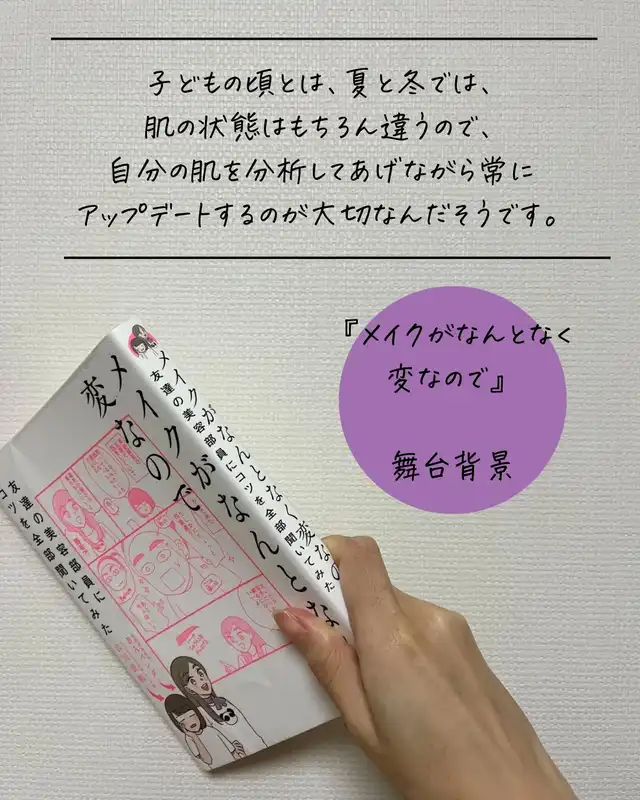 子どもの頃とは、夏と冬では、
肌の状態はもちろん違うので、
自分の肌を分析してあげながら常に
アップデートするのが大切なんだそうです。
『メイクがなんとなく
変なので』
舞台背景
メイクがなんとなく変なの
友達の美容部員にコツを全部聞いてみた
メイクがなんとな
変なので
友達の美容部員に
コツを全部聞いてみた